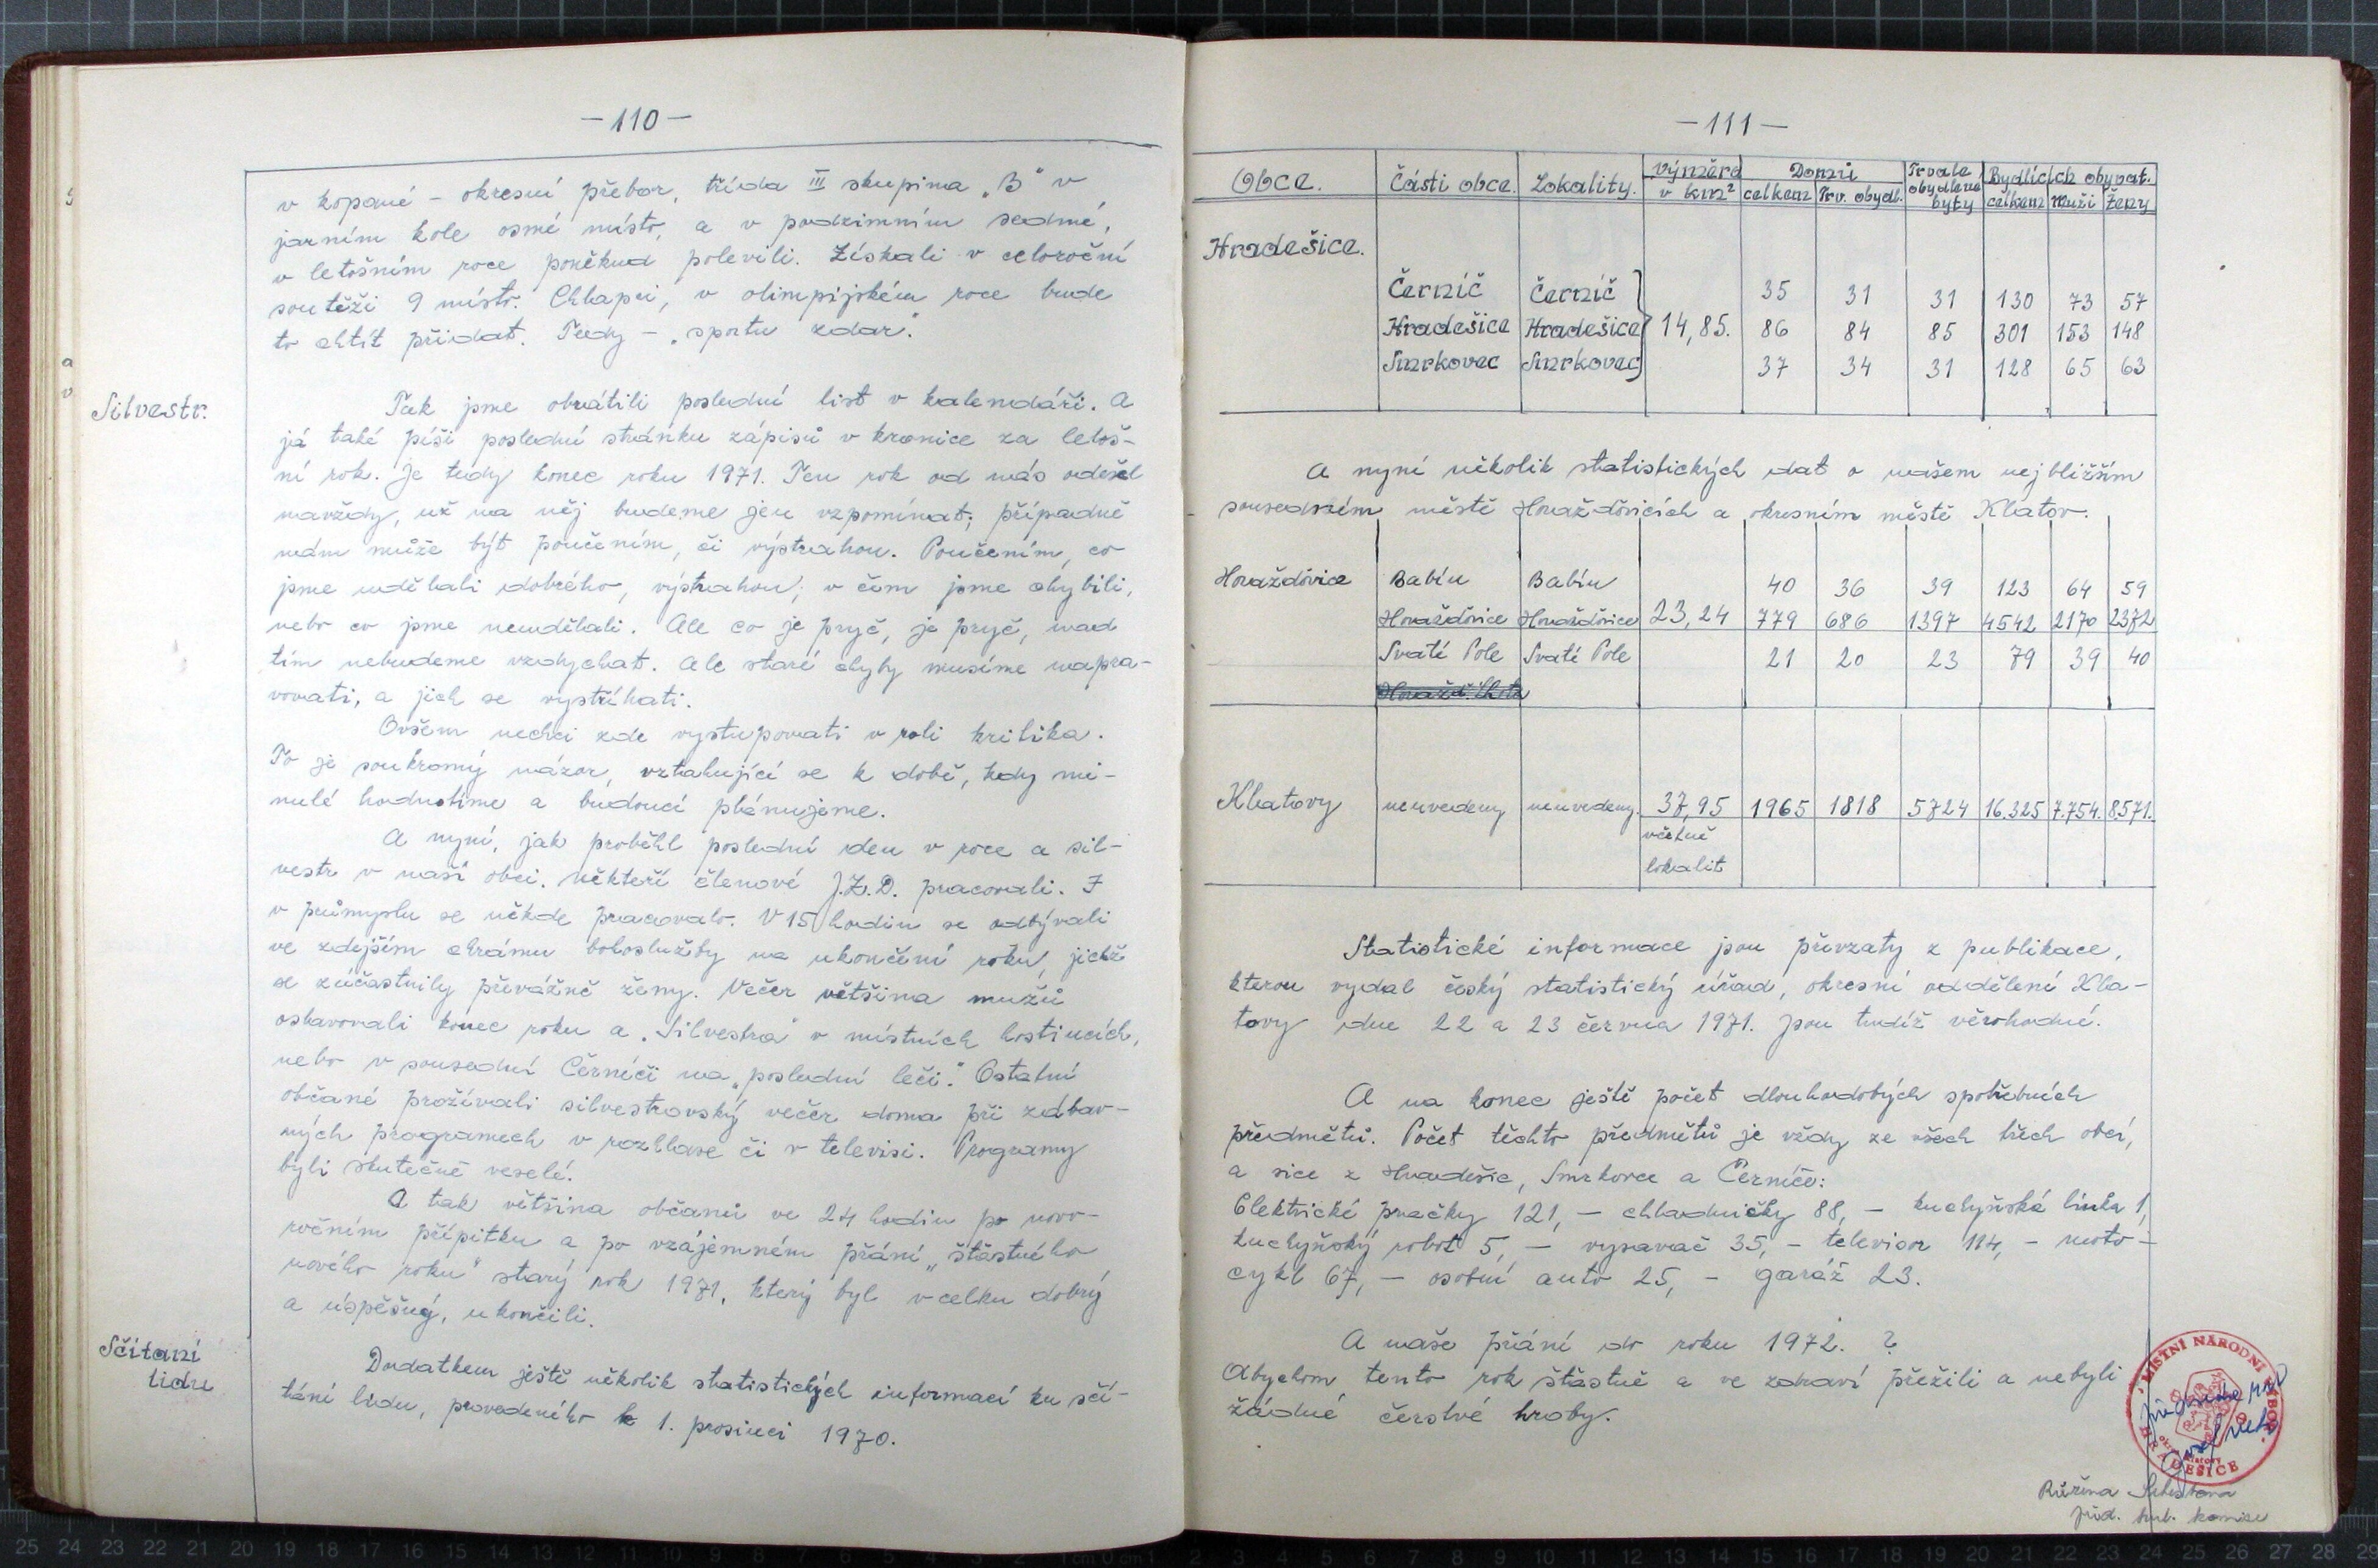 -110-
v kopané - okresní přebor, třída III skupina „B" v
jarním kole osmé místo, a v podzimním sedmé,
v letošním roce poněkud polevili. Získali v celoroční
soutěži 9 místo. Chlapci, v olimpijském roce bude
to chtít přidat. Tedy - „sportu zdar."
Silvestr.
Tak jsme obrátili poslední list v kalendáři. A
já také píši poslední stránku zápisů v kronice za letoš-
ní rok. Je tedy konec roku 1971. Ten rok od nás odešel
navždy, už na něj budeme jen vzpomínat, případně
nám může být poučením, či výstrahou. Poučením, co
jsme udělali dobrého, výstrahou, v čem jsme chybili,
nebo co jsme neudělali. Ale co je pryč, je pryč, nad
tím nebudeme vzdychat. Ale staré chyby musíme napra-
vovati, a jich se vystříhati.
Ovšem nechci zde vystupovati v roli kritika.
To je soukromý názor, vztahující se k době, kdy mi-
nulé hodnotíme a budoucí plánujeme.
A nyní, jak proběhl poslední den v roce a sil-
vestr v naší obci. Někteří členové J.Z.D. pracovali. I
v průmyslu se někde pracovalo. V 15 hodin se odbývali
ve zdejším chrámu bohoslužby na ukončení roku, jichž
se zúčastnily převážně ženy. Večer většina mužů
oslavovali konec roku a „Silvestra" v místních hostincích,
nebo v sousední Černíči na „poslední leči." Ostatní
občané prožívali silvestrovský večer doma při zábav-
ných programech v rozhlase či v televisi. Programy
byli skutečně veselé.
A tak většina občanů ve 24 hodin po novo-
ročním přípitku a po vzájemném přání „štěstného
nového roku" starý rok 1971, který byl vcelku dobrý
a úspěšný, ukončili.
Sčítaní
lidu
Dodatkem ještě několik statistických informací ku sčí-
tání lidu, provedeného k 1. prosinci 1970.
-111-
Obce. Části obce. Lokality. Výměra v km² Domů celkem Trv. obydl. Trvale obydlené byty Bydlících obyvat. celkem Muži Ženy
Hradešice.
Černíč Černíč 35 31 31 130 73 57
Hradešice Hradešice 14,85. 86 84 85 301 153 148
Smrkovec Smrkovec 37 34 31 128 65 63
A nyní několik statistických dat o našem nejbližším
sousedním městě Horažďovicích a okresním městě Klatov.
Horažďovice Babín Babín 40 36 39 123 64 59
Horažďovice Horažďovice 23,24 779 686 1397 4542 2170 2372
Svaté Pole Svaté Pole 21 20 23 79 39 40
Klatovy neuvedeny neuvedeny. 37,95 1965 1818 5724 16.325 7.754. 8571.
včetně
lokalit
Statistické informace jsou převzaty z publikace,
kterou vydal český statistický úřad, okresní oddělení Kla-
tovy dne 22 a 23 června 1971. Jsou tudíž věrohodné.
A na konec ještě počet dlouhodobých spotřebních
předmětů. Počet těchto předmětů je vždy ze všech třech obcí,
a sice z Hradešic, Smrkovce a Černíče:
Elektrické pračky 121, - chladničky 88, - kuchyňská linka 1,
kuchyňský robot 5, - vysavač 35, - televisor 114, - moto-
cykl 67, - osobní auto 25, - garáž 23.
A naše přání do roku 1972. ?
Abychom tento rok šťastně a ve zdraví přežili a nebyli
žádné čerstvé hroby.
MÍSTNÍ NÁRODNÍ VÝBOR
HRADEŠICE
Josef
Růžena
před. kul. komise